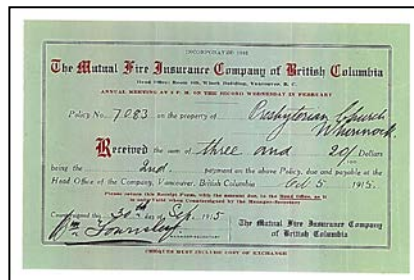 INCORPORATED 1902
The Mutual Fire Insurance Company of British Columbia
Head Office: Room 108, Winch Building, Vancouver, B. C.
ANNUAL MEETING AT 2 P. M. ON THE SECOND WEDNESDAY IN FEBRUARY
Policy No. 7083 on the property of Presbyterian Church
Whonnock
Received the sum of three and 20/ Dollars
being the 2nd. payment on the above Policy, due and payable at the
Head Office of the Company, Vancouver, British Columbia Oct 5 1915.
Please return this Receipt Form, with the amount due, to the Head Office, as it
is only Valid when Countersigned by the Manager-Secretary
Countersigned this 30th day of Sep. 1915
The Mutual Fire Insurance Company
of British Columbia
Townsley
CHEQUES MUST INCLUDE COST OF EXCHANGE